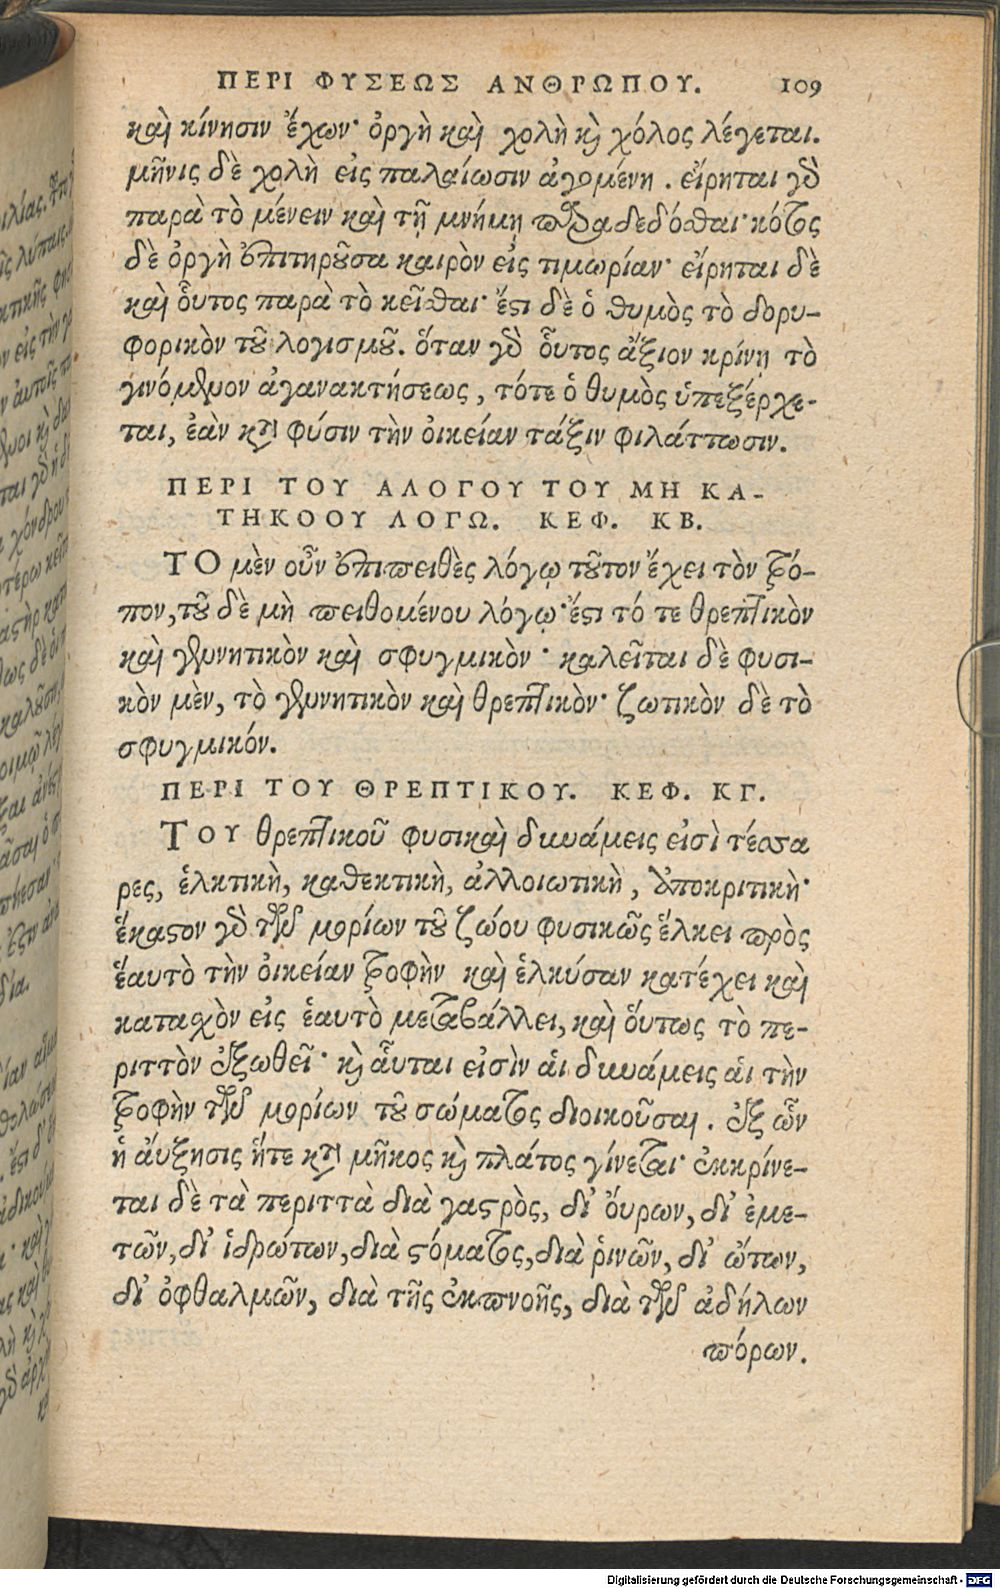 ΠΕΡΙ ΦΥΣΕΩΣ ΑΝΘΡΩΠΟΥ. 109
καὶ κίνησιν ἔχων· ὀργὴ καὶ χολὴ κὶ χόλος λέγεται.
μῆνις δὲ χολὴ εἰς παλαίωσιν ἀγομένη. εἴρηται γὸ
παρὰ τὸ μένειν καὶ τῇ μνήμῃ παραδεδόσθαι· κότος
δὲ ὀργὴ ἐπιτηροῦσα καιρὸν εἰς τιμωρίαν· εἴρηται δὲ
καὶ οὗτος παρὰ τὸ κεῖσθαι· ἔστι δὲ ὁ θυμὸς τὸ δορυ-
φορικὸν τοῦ λογισμοῦ. ὅταν γὸ οὗτος ἄξιον κρίνῃ τὸ
γινόμενον ἀγανακτήσεως, τότε ὁ θυμὸς ὑπεξέρχε-
ται, ἐὰν κατὰ φύσιν τὴν οἰκείαν τάξιν φιλάττωσιν.
ΠΕΡΙ ΤΟΥ ΑΛΟΓΟΥ ΤΟΥ ΜΗ ΚΑ-
ΤΗΚΟΟΥ ΛΟΓΩ. ΚΕΦ. ΚΒ.
ΤΟ μὲν οὖν ἐπιπειθὲς λόγῳ τοῦτον ἔχει τὸν τρό-
πον, τοῦ δὲ μὴ πειθομένου λόγῳ· ἔστι τό τε θρεπτικὸν
καὶ γεννητικὸν καὶ σφυγμικὸν· καλεῖται δὲ φυσι-
κὸν μὲν, τὸ γεννητικὸν καὶ θρεπτικὸν· ζωτικὸν δὲ τὸ
σφυγμικόν.
ΠΕΡΙ ΤΟΥ ΘΡΕΠΤΙΚΟΥ. ΚΕΦ. ΚΓ.
ΤΟΥ θρεπτικοῦ φυσικαὶ δυνάμεις εἰσὶ τέσσα
ρες, ἑλκτικὴ, καθεκτικὴ, ἀλλοιωτικὴ, ἀποκριτικὴ·
ἕκαστον γὸ τῶν μορίων τοῦ ζώου φυσικῶς ἕλκει πρὸς
ἑαυτὸ τὴν οἰκείαν τροφὴν καὶ ἑλκύσαν κατέχει καὶ
κατασχὸν εἰς ἑαυτὸ μεταβάλλει, καὶ οὕτως τὸ πε-
ριττὸν ἐξωθεῖ· κὶ αὗται εἰσὶν αἱ δυνάμεις αἱ τὴν
τροφὴν τῶν μορίων τοῦ σώματος διοικοῦσαι. ἐξ ὧν
ἡ αὔξησις ἥτε κατὰ μῆκος κὶ πλάτος γίνεται· ἐκκρίνε-
ται δὲ τὰ περιττὰ διὰ γαστρὸς, δι' οὔρων, δι' ἐμε-
τῶν, δι' ἱδρώτων, διὰ στόματος, διὰ ῥινῶν, δι' ὤτων,
δι' ὀφθαλμῶν, διὰ τῆς ἐκπνοῆς, διὰ τῶν ἀδήλων
πόρων.
Digitalisierung gefördert durch die Deutsche Forschungsgemeinschaft - DFG